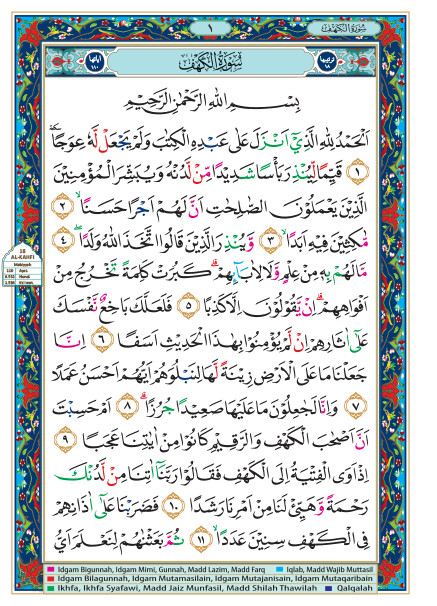 سُوْرَةُ الْكَهْفِ
١
ترتيبها
١٨
سُوْرَةُ الْكَهْفِ
اٰياتها
١١٠
بِسْمِ اللّٰهِ الرَّحْمٰنِ الرَّحِيْمِ
اَلْحَمْدُ لِلّٰهِ الَّذِيْٓ اَنْزَلَ عَلٰى عَبْدِهِ الْكِتٰبَ وَلَمْ يَجْعَلْ لَّهٗ عِوَجًا ۜ
١ قَيِّمًا لِّيُنْذِرَ بَأْسًا شَدِيْدًا مِّنْ لَّدُنْهُ وَيُبَشِّرَ الْمُؤْمِنِيْنَ
الَّذِيْنَ يَعْمَلُوْنَ الصّٰلِحٰتِ اَنَّ لَهُمْ اَجْرًا حَسَنًاۙ ٢
مَّاكِثِيْنَ فِيْهِ اَبَدًاۙ ٣ وَّيُنْذِرَ الَّذِيْنَ قَالُوا اتَّخَذَ اللّٰهُ وَلَدًاۖ ٤
مَا لَهُمْ بِهٖ مِنْ عِلْمٍ وَّلَا لِاٰبَاۤىِٕهِمْۗ كَبُرَتْ كَلِمَةً تَخْرُجُ مِنْ
اَفْوَاهِهِمْۗ اِنْ يَّقُوْلُوْنَ اِلَّا كَذِبًا ٥ فَلَعَلَّكَ بَاخِعٌ نَّفْسَكَ
عَلٰٓى اٰثَارِهِمْ اِنْ لَّمْ يُؤْمِنُوْا بِهٰذَا الْحَدِيْثِ اَسَفًا ٦ اِنَّا
جَعَلْنَا مَا عَلَى الْاَرْضِ زِيْنَةً لَّهَا لِنَبْلُوَهُمْ اَيُّهُمْ اَحْسَنُ عَمَلًا
٧ وَاِنَّا لَجَاعِلُوْنَ مَا عَلَيْهَا صَعِيْدًا جُرُزًاۗ ٨ اَمْ حَسِبْتَ
اَنَّ اَصْحٰبَ الْكَهْفِ وَالرَّقِيْمِ كَانُوْا مِنْ اٰيٰتِنَا عَجَبًا ٩
اِذْ اَوَى الْفِتْيَةُ اِلَى الْكَهْفِ فَقَالُوْا رَبَّنَآ اٰتِنَا مِنْ لَّدُنْكَ
رَحْمَةً وَّهَيِّئْ لَنَا مِنْ اَمْرِنَا رَشَدًا ١٠ فَضَرَبْنَا عَلٰٓى اٰذَانِهِمْ
فِى الْكَهْفِ سِنِيْنَ عَدَدًاۙ ١١ ثُمَّ بَعَثْنٰهُمْ لِنَعْلَمَ اَيُّ
18
AL-KAHFI
Makkiyyah
110 Ayat
Idgam Bigunnah, Idgam Mimi, Gunnah, Madd Lazim, Madd Farq Iqlab, Madd Wajib Muttasil
Idgam Bilagunnah, Idgam Mutamasilain, Idgam Mutajanisain, Idgam Mutaqaribain
Ikhfa, Ikhfa Syafawi, Madd Jaiz Munfasil, Madd Shilah Thawilah Qalqalah